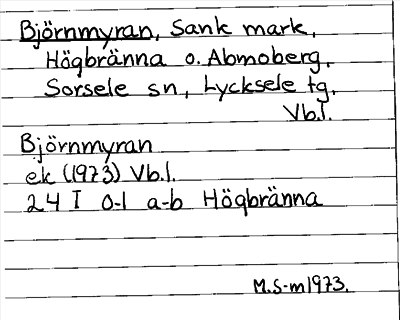 Björnmyran, Sank mark,
Högbränna o. Abmoberg,
Sorsele sn, Lycksele tg,
Vb.l.
Björnmyran
ek (1973) Vb.l.
24 I 0-1 a-b Högbränna
M.S-m 1973.